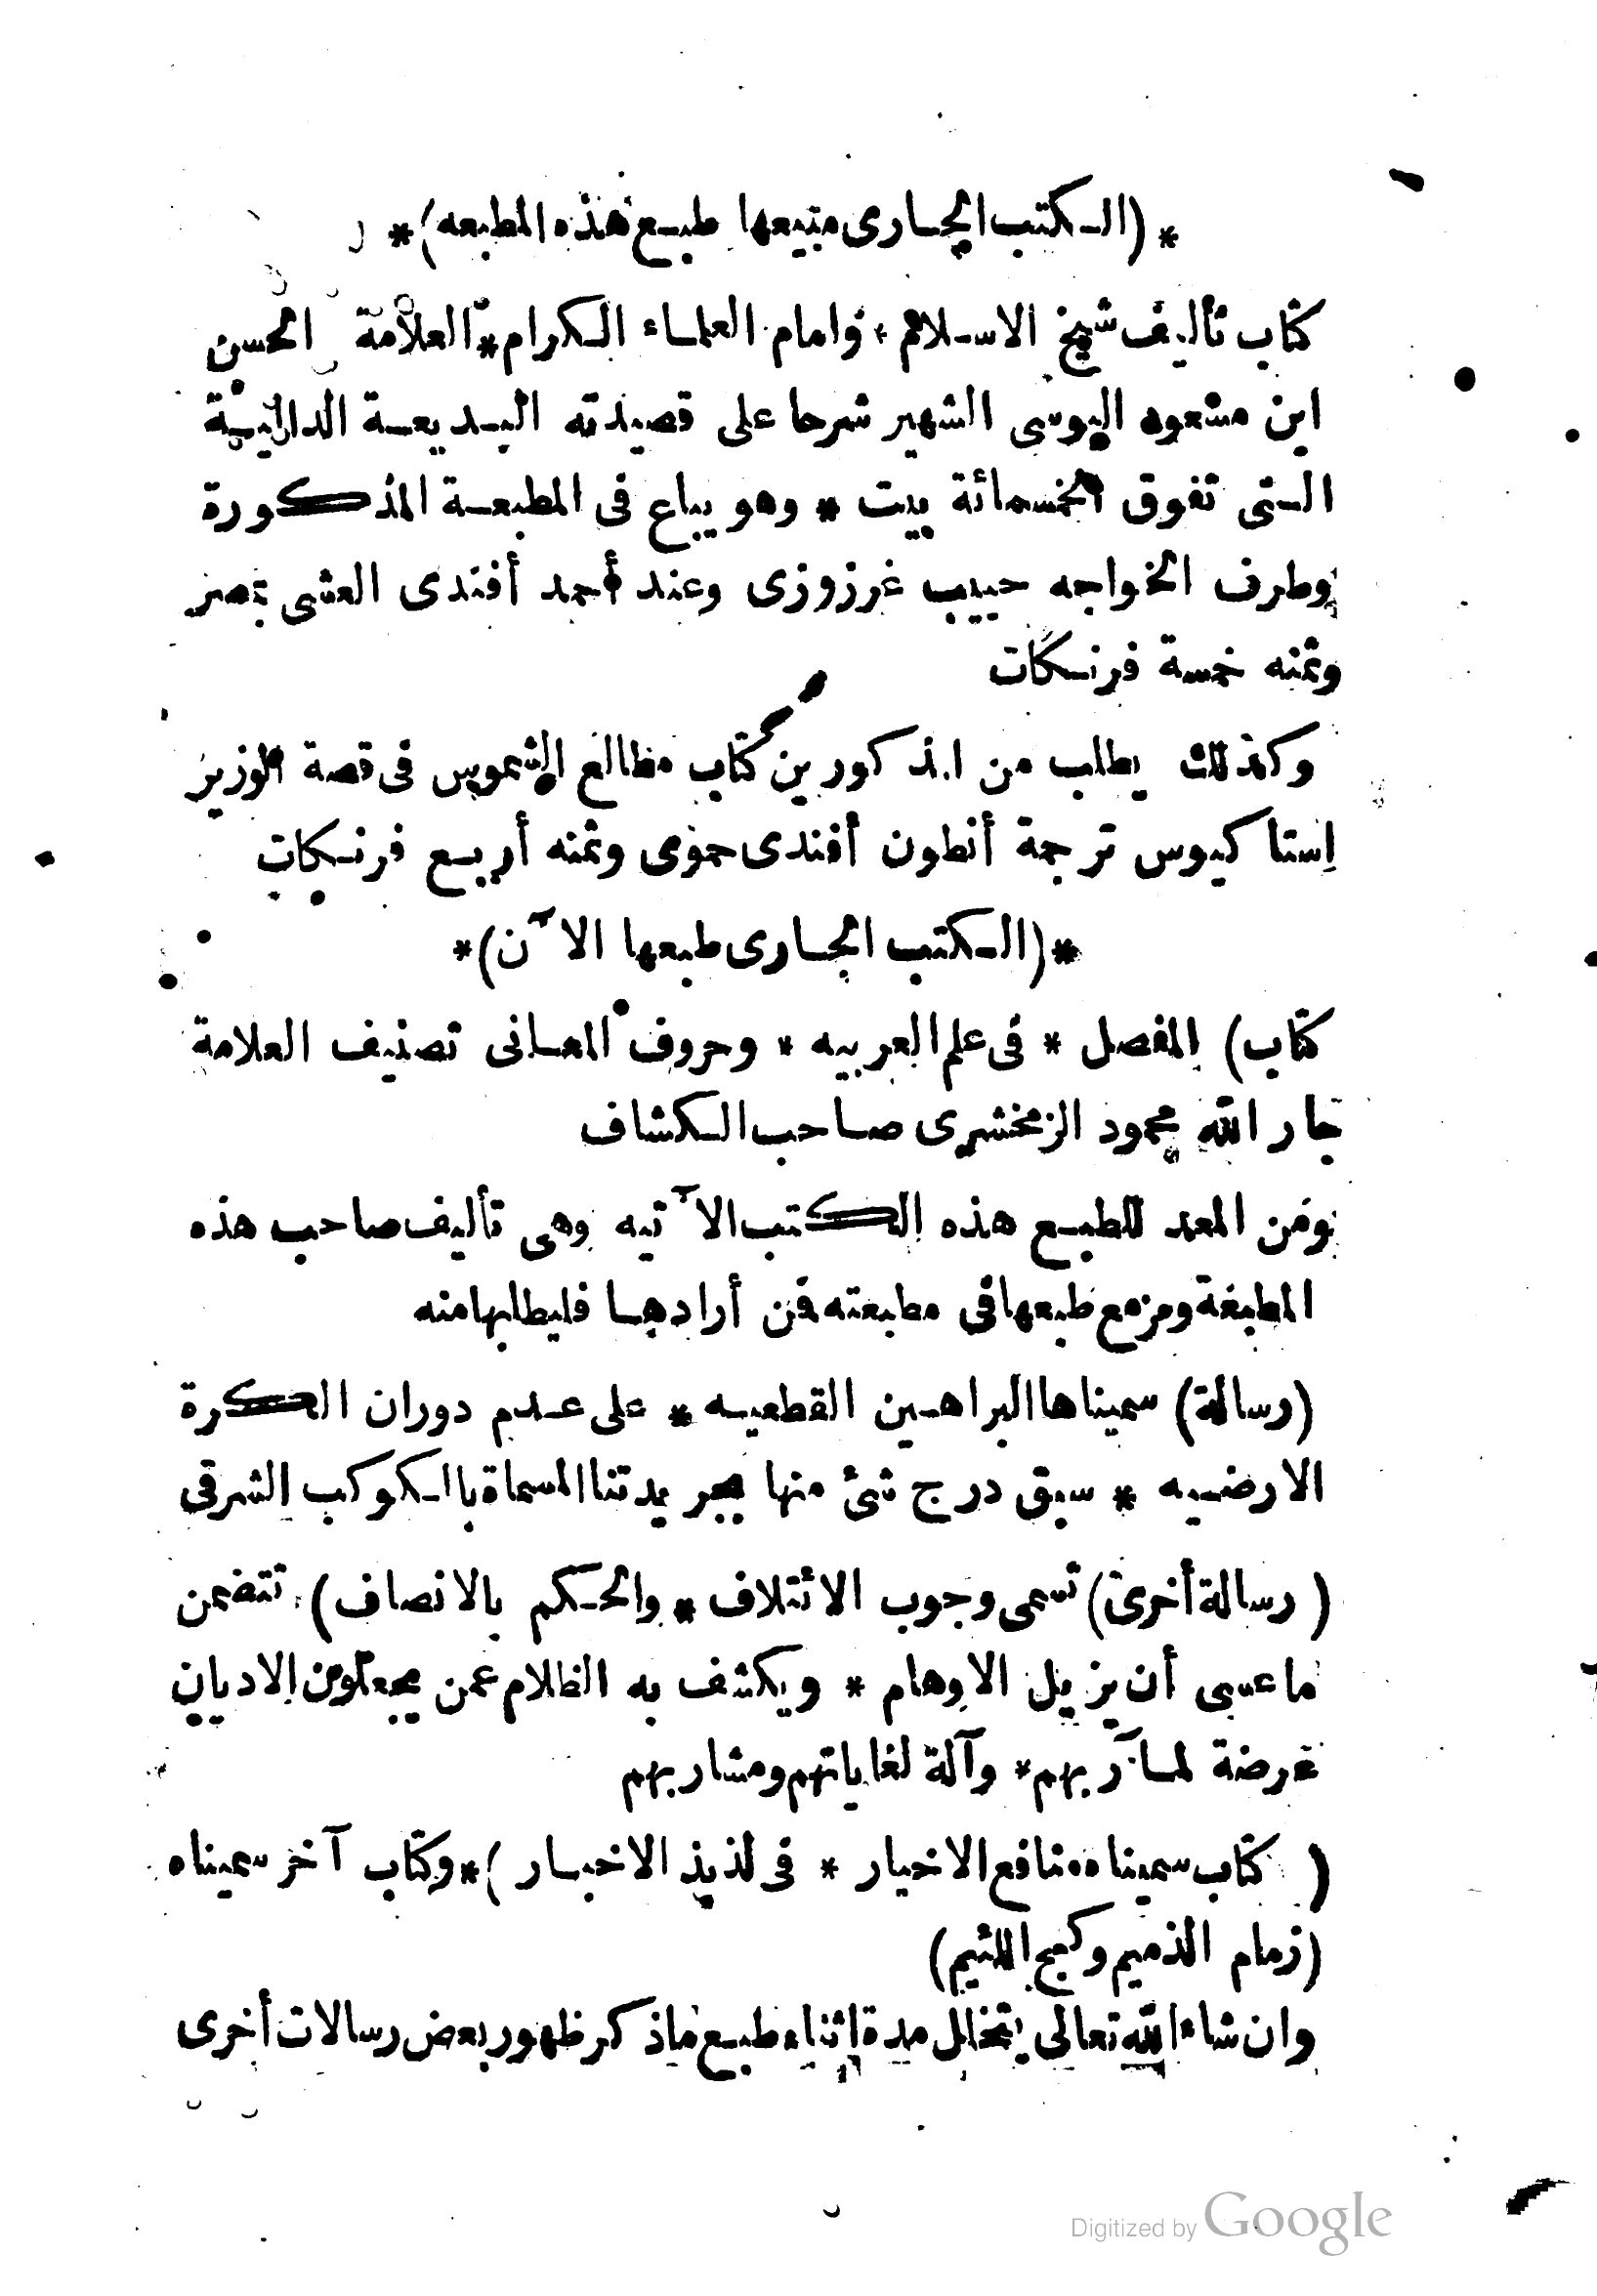 *(الكتب الجارى مبيعها طبع هذه المطبعه)*
كتاب تأليف شيخ الاسلام * وامام العلماء الكرام * العلامة الحسن
ابن مسعود اليوسى الشهير شرحا على قصيدته البديعة الدالية
التى تفوق الخسمائة بيت * وهو يباع فى المطبعة المذكورة
وطرف الخواجه حبيب غرزوزى وعند أحمد أفندى العشى بمصر
وثمنه خمسة فرنكات
وكذلك يطلب من المذكورين كتاب مطالع الشموس فى قصة الوزير
إستاكيوس ترجمة أنطون أفندى حموى وثمنه أربع فرنكات
*(الكتب الجارى طبعها الآن)*
كتاب) المفصل * فى علم العربيه * وحروف المعانى تصنيف العلامة
جار الله محمود الزمخشرى صاحب الكشاف
ومن المعد للطبع هذه الكتب الآتيه وهى تأليف صاحب هذه
المطبعة ومزمع طبعها فى مطبعته فمن أرادها فليطلبها منه
(رسالة) سميناها البراهين القطعيه * على عدم دوران الكرة
الارضيه * سبق درج شئ منها بجريدتنا المسماة بالكوكب الشرقى
(رسالة أخرى) تسمى وجوب الائتلاف * والحكم بالانصاف) تتضمن
ما عسى أن يزيل الاوهام * ويكشف به الظلام عمن يجعلون الاديان
عرضة لمآربهم * وآلة لغاياتهم ومشاربهم
(كتاب سميناه منافع الاخيار * فى لذيذ الاخبار)* وكتاب آخر سميناه
(زمام الذميم وكبح اللئيم)
وان شاء الله تعالى يتخلل مدة اثناء طبع ماذكر ظهور بعض رسالات أخرى
Digitized by Google